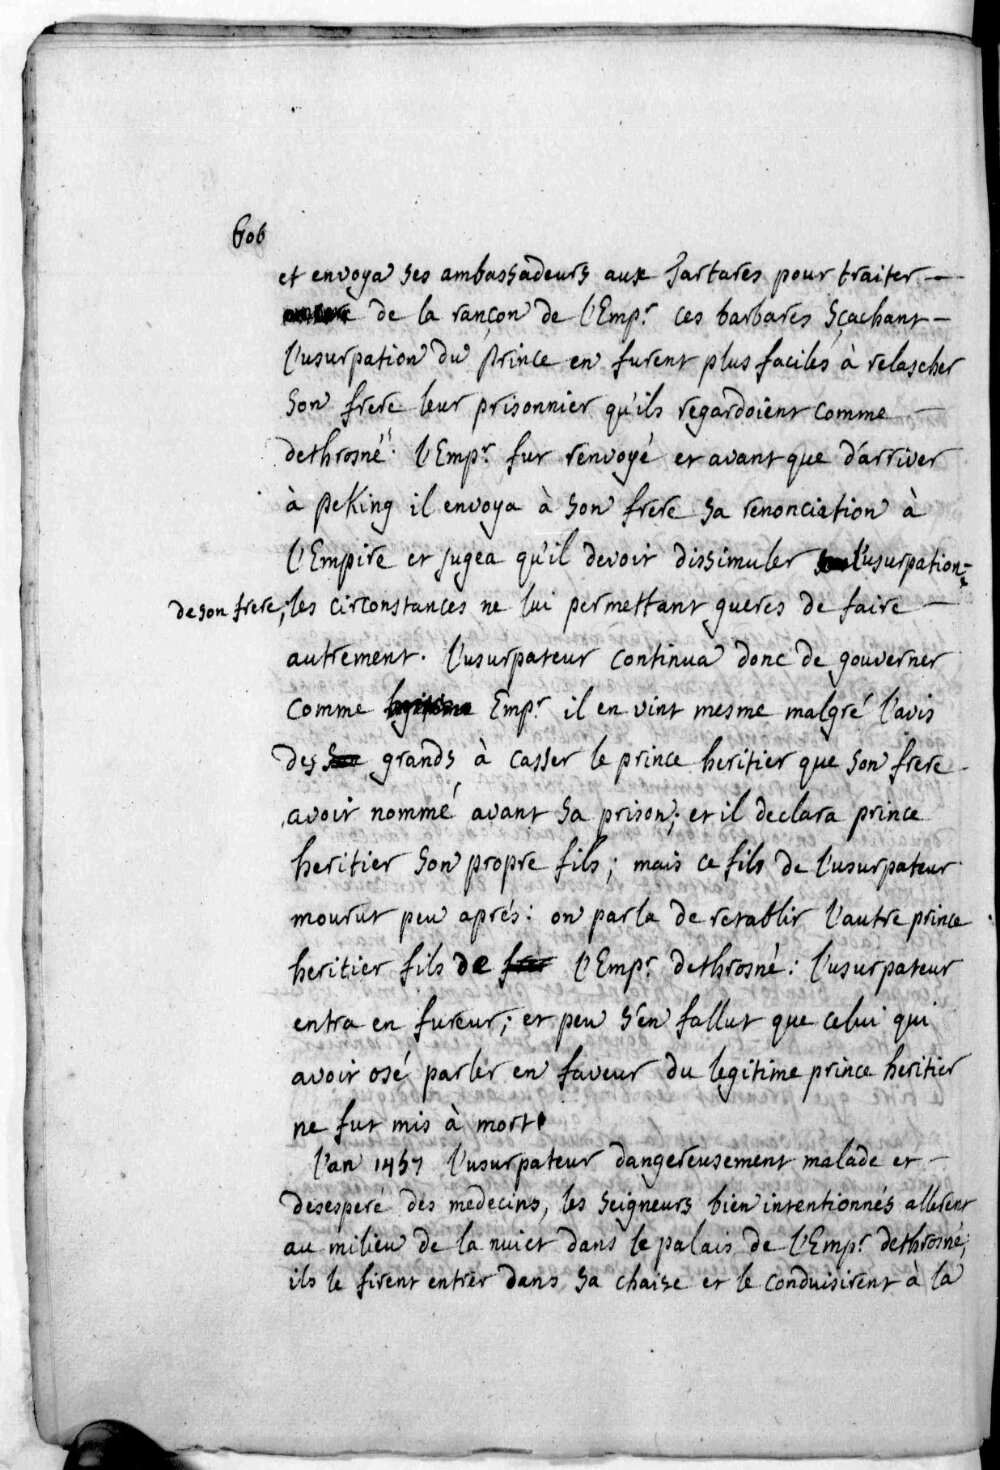 606
et envoya ses ambassadeurs aux Tartares pour traiter —
de la rançon de l'Emp.r ces barbares sçachant —
l'usurpation du Prince en furent plus faciles à relascher
son frere leur prisonnier qu'ils regardoient comme —
dethrosné. l'Emp.r fut renvoyé et avant que d'arriver
à PeKing il envoya à son frere sa renonciation à
l'Empire et jugea qu'il devoit dissimuler l'usurpation
de son frere; les circonstances ne lui permettant gueres de faire —
autrement. l'usurpateur continua donc de gouverner
comme legitime Emp.r il en vint mesme malgré l'avis
des grands à casser le prince heritier que son frere
avoit nommé avant sa prison; et il declara prince
heritier son propre fils; mais ce fils de l'usurpateur
mourut peu aprés: on parla de retablir l'autre prince
heritier fils de l'Emp.r dethrosné: l'usurpateur
entra en fureur; et peu s'en fallut que celui qui
avoit osé parler en faveur du legitime prince heritier
ne fut mis à mort.
l'an 1457 l'usurpateur dangereusement malade et —
desesperé des medecins, les seigneurs bien intentionnés allerent
au milieu de la nuict dans le palais de l'Emp.r dethrosné;
ils le firent entrer dans sa chaise et le conduisirent à la